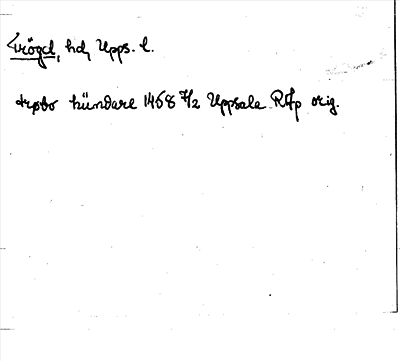 Trögd, hd, Upps. l.
hündare 1468 7/2 Uppsala RAp orig.